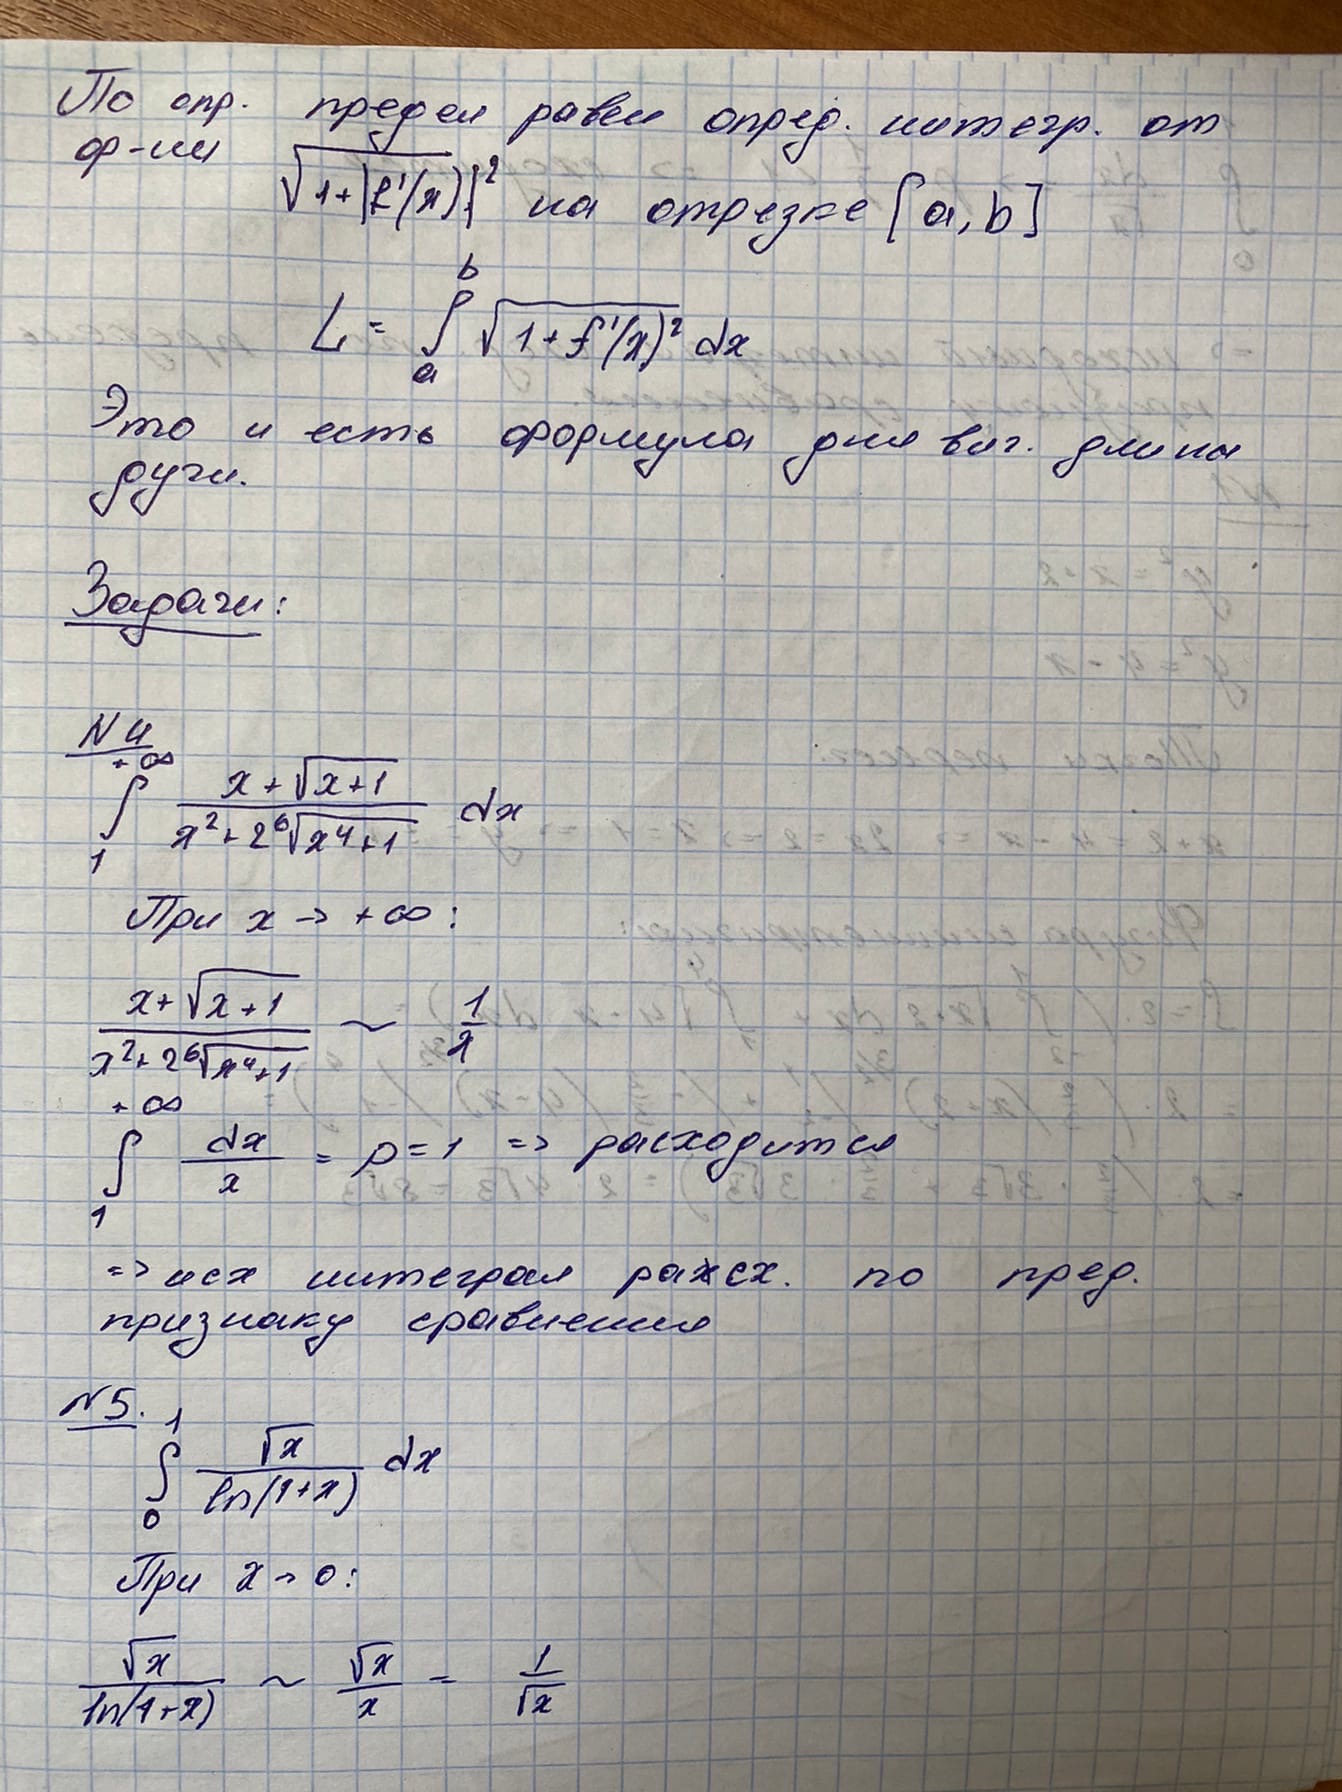 По опр. предел равен опред. интегр. от
ф-ии √(1+|f'(x)|²) на отрезке [a, b]
L = ∫ₐᵇ √(1+f'(x)²) dx
Это и есть формула для выч. длины
дуги.
Задачи:
N4
∫₁^{+∞} (x+√(x+1))/(x²+2⁶√(x⁴+1)) dx
При x → +∞:
(x+√(x+1))/(x²+2⁶√(x⁴+1)) ~ 1/x
∫₁^{+∞} dx/x = p=1 => расходится
=> исх интеграл расх. по пред.
признаку сравнения
N5.
∫₀¹ √x/ln(1+x) dx
При x → 0:
√x/ln(1+x) ~ √x/x = 1/√x